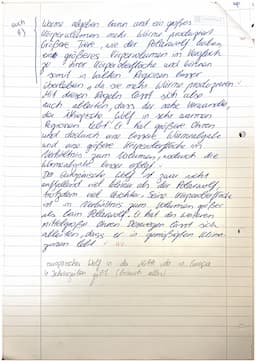 auch Wärme abgeben kann und ein großes
4) Körpervolumen mehr Wärme produziert.
Größere Tiere, wie der Polarwolf haben,
ein größeres Körpervolumen im Vergleich
zu ihrer Körperoberfläche und können
somit in kalten Regionen besser
überleben, da sie mehr Wärme produzieren.
Mit diesen Regeln lässt sich also
auch ableiten, dass der nahe Verwandte,
der Äthiopische Wolf in sehr warmen
Regionen lebt. Er hat größere Ohren
und dadurch eine bessere Wärmeabgabe
und eine größere Körperoberfläche im
Verhältnis zum Volumen, wodurch die
Wärmeabgabe besser erfolgt.
Der Europäische Wolf ist zwar nicht
viel kleiner als der Polarwolf,
trotzdem ist seine Körperoberfläche
im Verhältnis zum Volumen größer
als beim Polarwolf. Er hat des Weiteren
mittelgroße Ohren. Deswegen lässt sich
ableiten, dass er in gemäßigten Klima-
zonen lebt.
europäischer Wolf in der Mitte, da in Europa
4 Jahreszeiten gibt